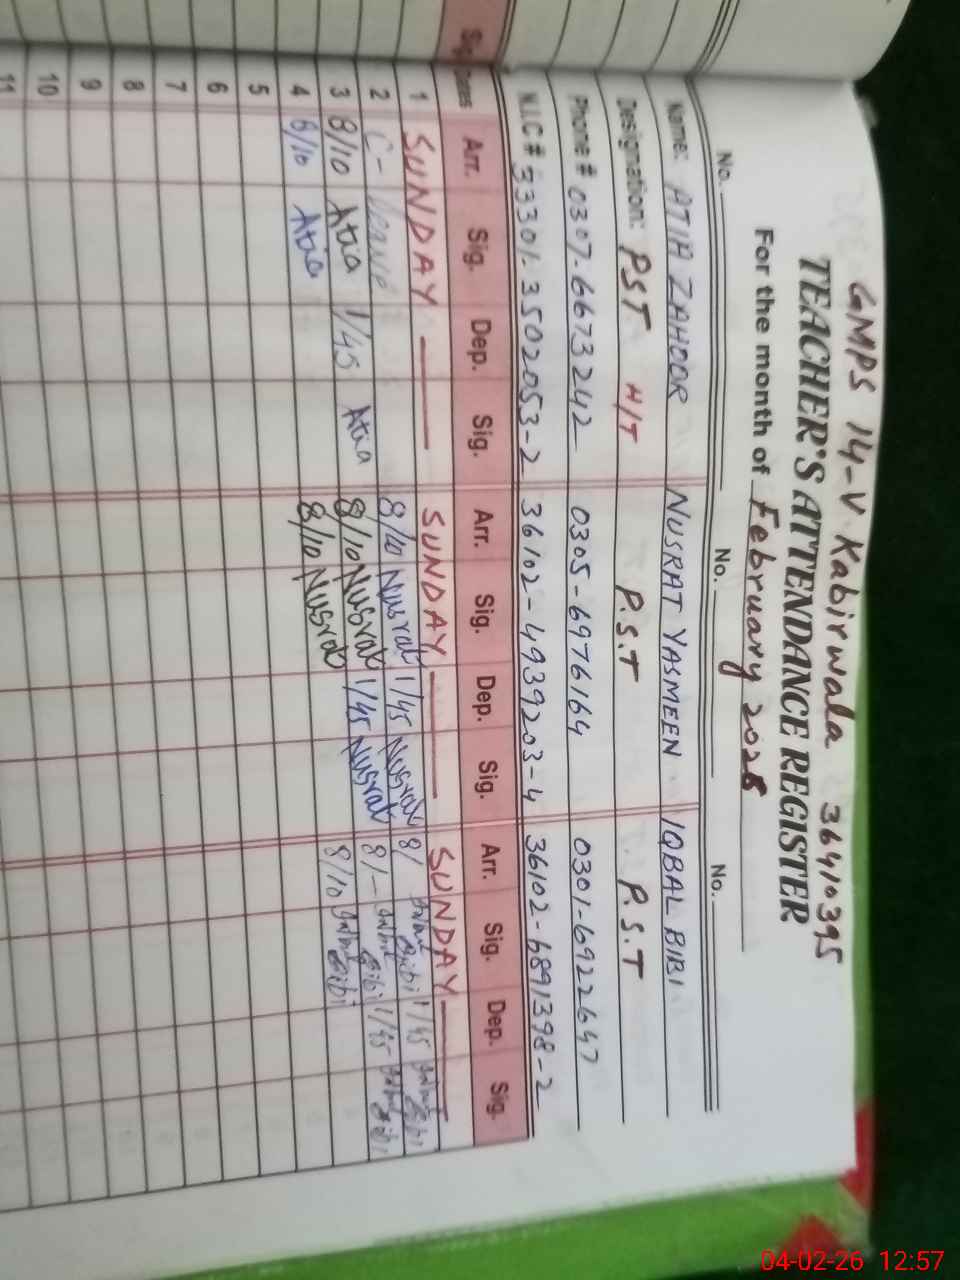 GMPS 14-V Kabirwala 36410395
TEACHER'S ATTENDANCE REGISTER
For the month of February 2026
No. No. No.
Name: ATIA ZAHOOR NUSRAT YASMEEN IQBAL BIBI
Designation: PST H/T P.S.T P.S.T
Phone # 0307-6673242 0305-6976164 0301-6922647
N.I.C # 33301-3502053-2 36102-4939203-4 36102-6891398-2
Sig. Dates Arr. Sig. Dep. Sig. Arr. Sig. Dep. Sig. Arr. Sig. Dep. Sig.
1 SUNDAY SUNDAY SUNDAY
2 C-leave 8/10 Nusrat 1/45 Nusrat 8/ Bibi 1/45 Bibi
3 8/10 Atia 1/45 Atia 8/10 Nusrat 1/45 Nusrat 8/- Bibi 1/45 Bibi
4 8/10 Atia 8/10 Nusrat 8/10 Bibi
5
6
7
8
9
10
11
04-02-26 12:57